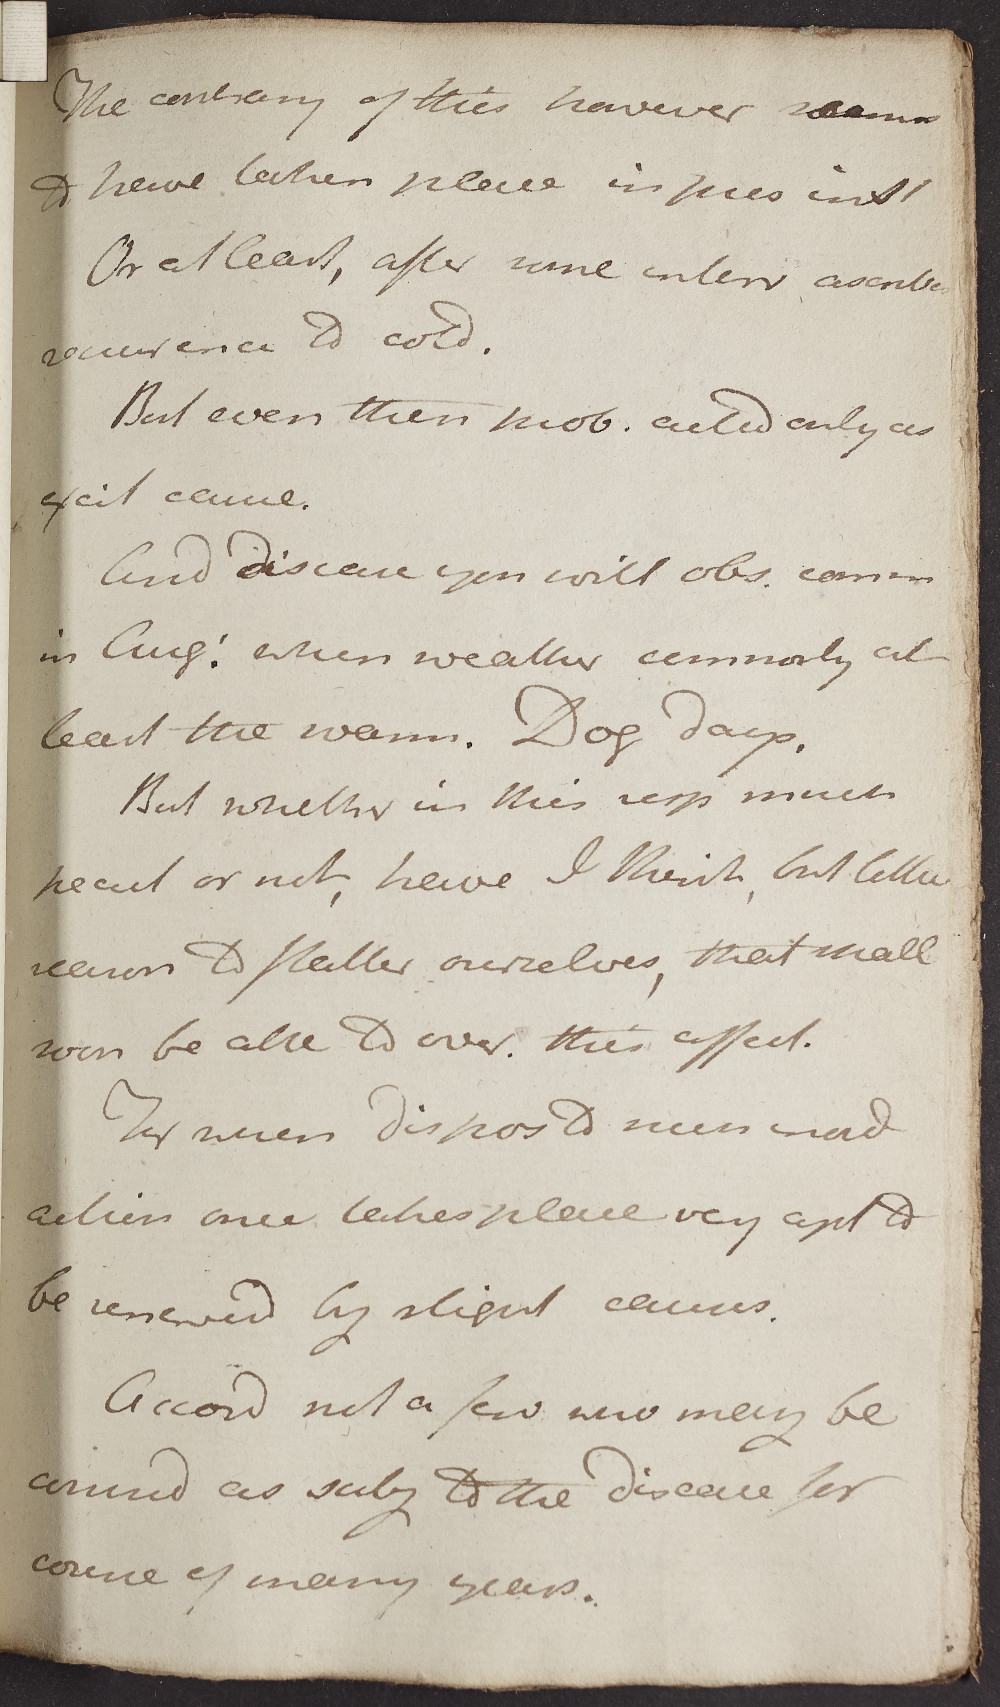 The contrary of this however seems
to have taken place in pres inst
Or at least, after some interv ascribes
recurrence to cold.
But even then prob. acted only as
excit cause.
And disease you will obs. comm
in Aug: when weather commonly at
least the warm. Dog days.
But whether in this resp much
pecul or not, have I think, but little
reason to flatter ourselves, that shall
soon be able to over. this affect.
For when dispos to such inord
action once takes place very apt to
be renewed by slight causes.
Accord not a few who may be
consid as subj to the disease for
course of many years.